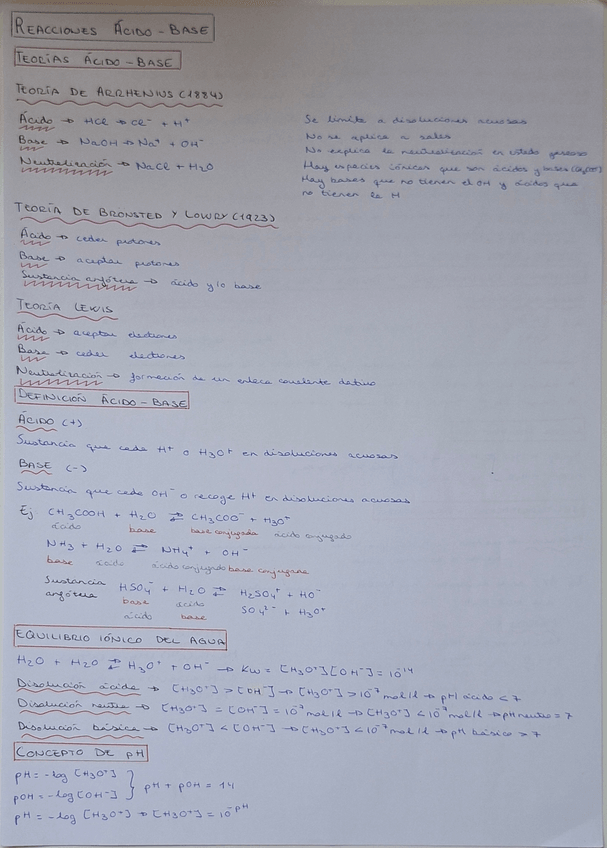 REACCIONES ÁCIDO-BASE
TEORÍAS ÁCIDO-BASE
TEORÍA DE ARRHENIUS (1884)
Ácido → HCl → Cl⁻ + H⁺
Base → NaOH → Na⁺ + OH⁻
Neutralización → NaCl + H₂O
Se limita a disoluciones acuosas
No se aplica a sales
No explica la neutralización en estado gaseoso
Hay especies iónicas que son ácidos y bases
Hay bases que no tienen el OH y ácidos que
no tienen la H
TEORÍA DE BRONSTED Y LOWRY (1923)
Ácido → ceder protones
Base → aceptar protones
Sustancia anfótera → ácido y/o base
TEORÍA LEWIS
Ácido → aceptar electrones
Base → ceder electrones
Neutralización → formación de un enlace covalente dativo
DEFINICIÓN ÁCIDO-BASE
ÁCIDO (+)
Sustancia que cede H⁺ o H₃O⁺ en disoluciones acuosas
BASE (-)
Sustancia que cede OH⁻ o recoge H⁺ en disoluciones acuosas
Ej CH₃COOH + H₂O ⇄ CH₃COO⁻ + H₃O⁺
ácido base base conjugada ácido conjugado
NH₃ + H₂O ⇄ NH₄⁺ + OH⁻
base ácido ácido conjugado base conjugada
Sustancia anfótera HSO₄⁻ + H₂O ⇄ H₂SO₄⁺ + HO⁻
base ácido SO₄²⁻ + H₃O⁺
ácido base
EQUILIBRIO IÓNICO DEL AGUA
H₂O + H₂O ⇄ H₃O⁺ + OH⁻ → Kw = [H₃O⁺][OH⁻] = 10⁻¹⁴
Disolución ácida → [H₃O⁺] > [OH⁻] → [H₃O⁺] > 10⁻⁷ mol/l → pH ácido < 7
Disolución neutra → [H₃O⁺] = [OH⁻] = 10⁻⁷ mol/l → [H₃O⁺] < 10⁻⁷ mol/l → pH neutro = 7
Disolución básica → [H₃O⁺] < [OH⁻] → [H₃O⁺] < 10⁻⁷ mol/l → pH básico > 7
CONCEPTO DE pH
pH = -log [H₃O⁺]
pOH = -log [OH⁻] } pH + pOH = 14
pH = -log [H₃O⁺] → [H₃O⁺] = 10⁻ᵖᴴ